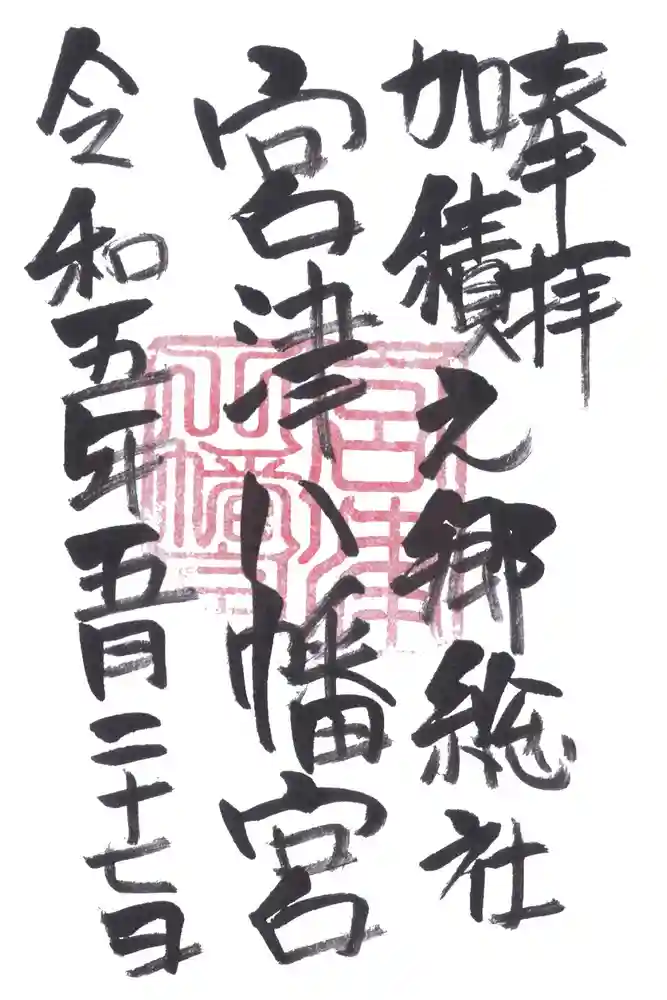 奉拝
加積之郷総社
宮津八幡宮
令和五年五月二十七日
宮津
八幡宮